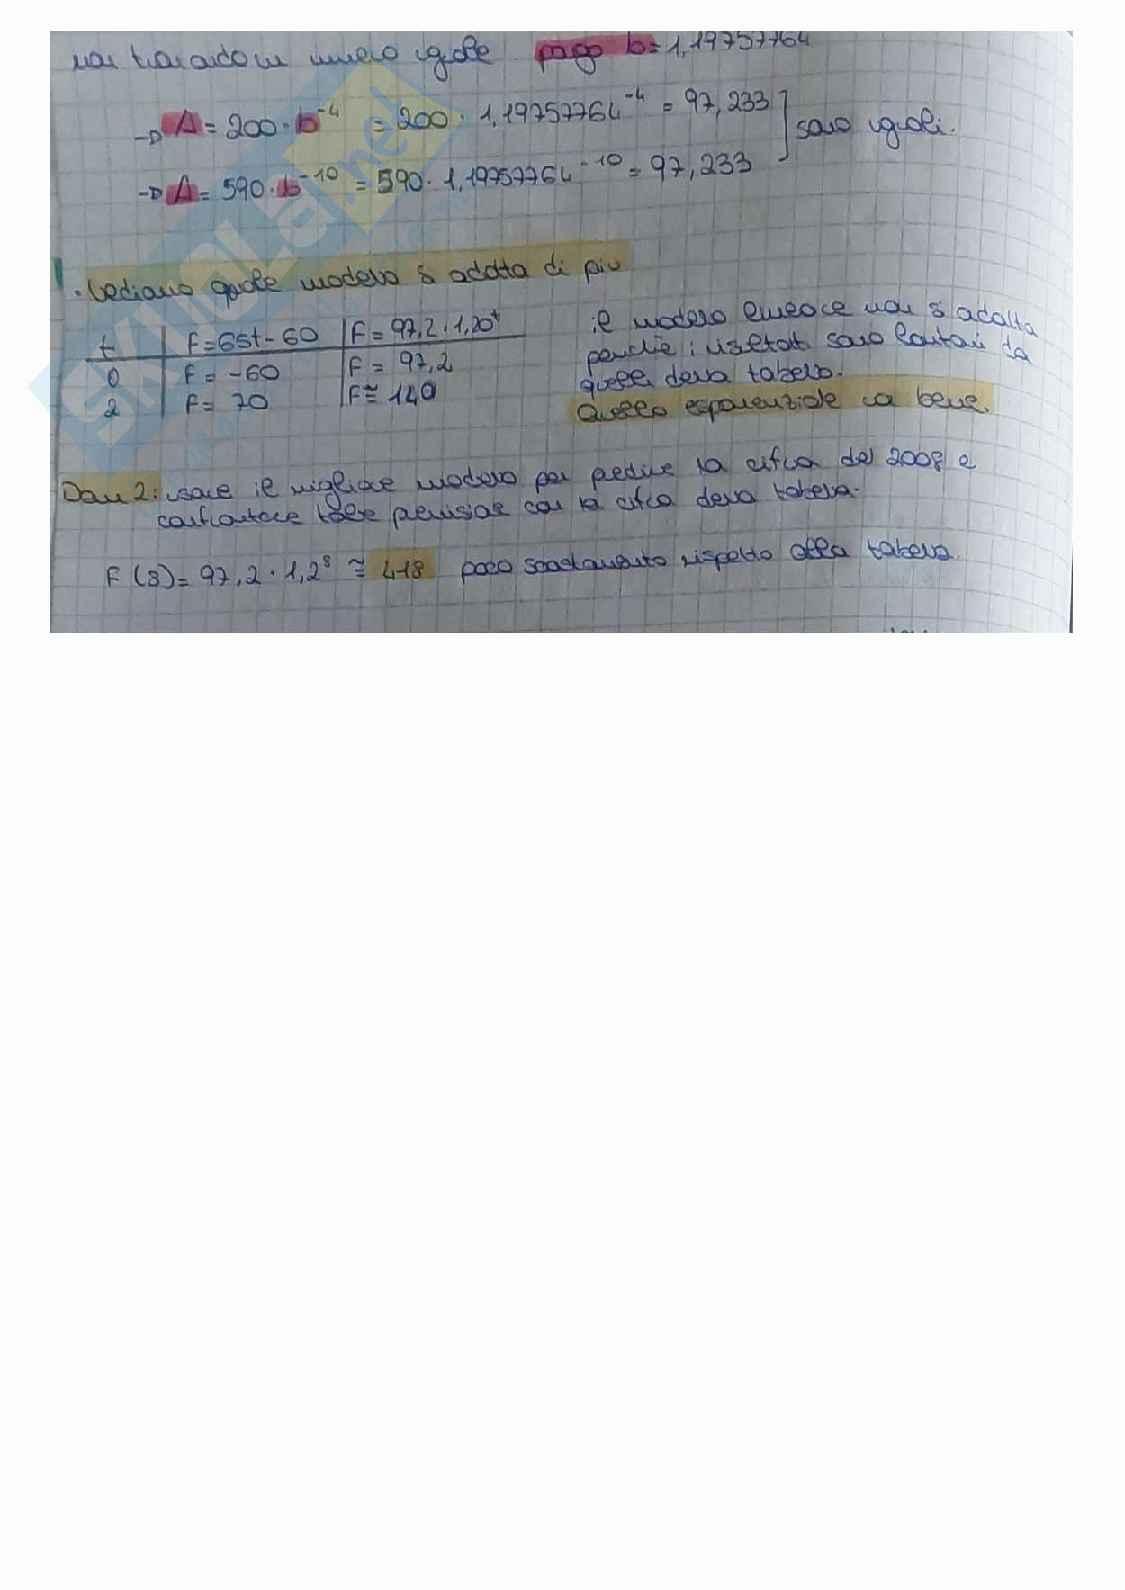 non trovandomi numero uguale pago b = 1,19757764
→ A = 200 · b⁻⁴ = 200 · 1,19757764⁻⁴ = 97,233
→ A = 590 · b⁻¹⁰ = 590 · 1,19757764⁻¹⁰ = 97,233
sono uguali.
· Vediamo quale modello si adatta di più
t F = 65t - 60 F = 97,2 · 1,20ᵗ
0 F = -60 F = 97,2
2 F = 70 F ≅ 140
il modello lineare non si adatta
perchè i risultati sono lontani da
quelli della tabella.
Quello esponenziale va bene.
Dom 2: usare il migliore modello per predire la cifra del 2008 e
confrontare tale previsione con la cifra della tabella.
F (8) = 97,2 · 1,2⁸ ≅ 418 poco scostamento rispetto alla tabella.
SKUOLA.net